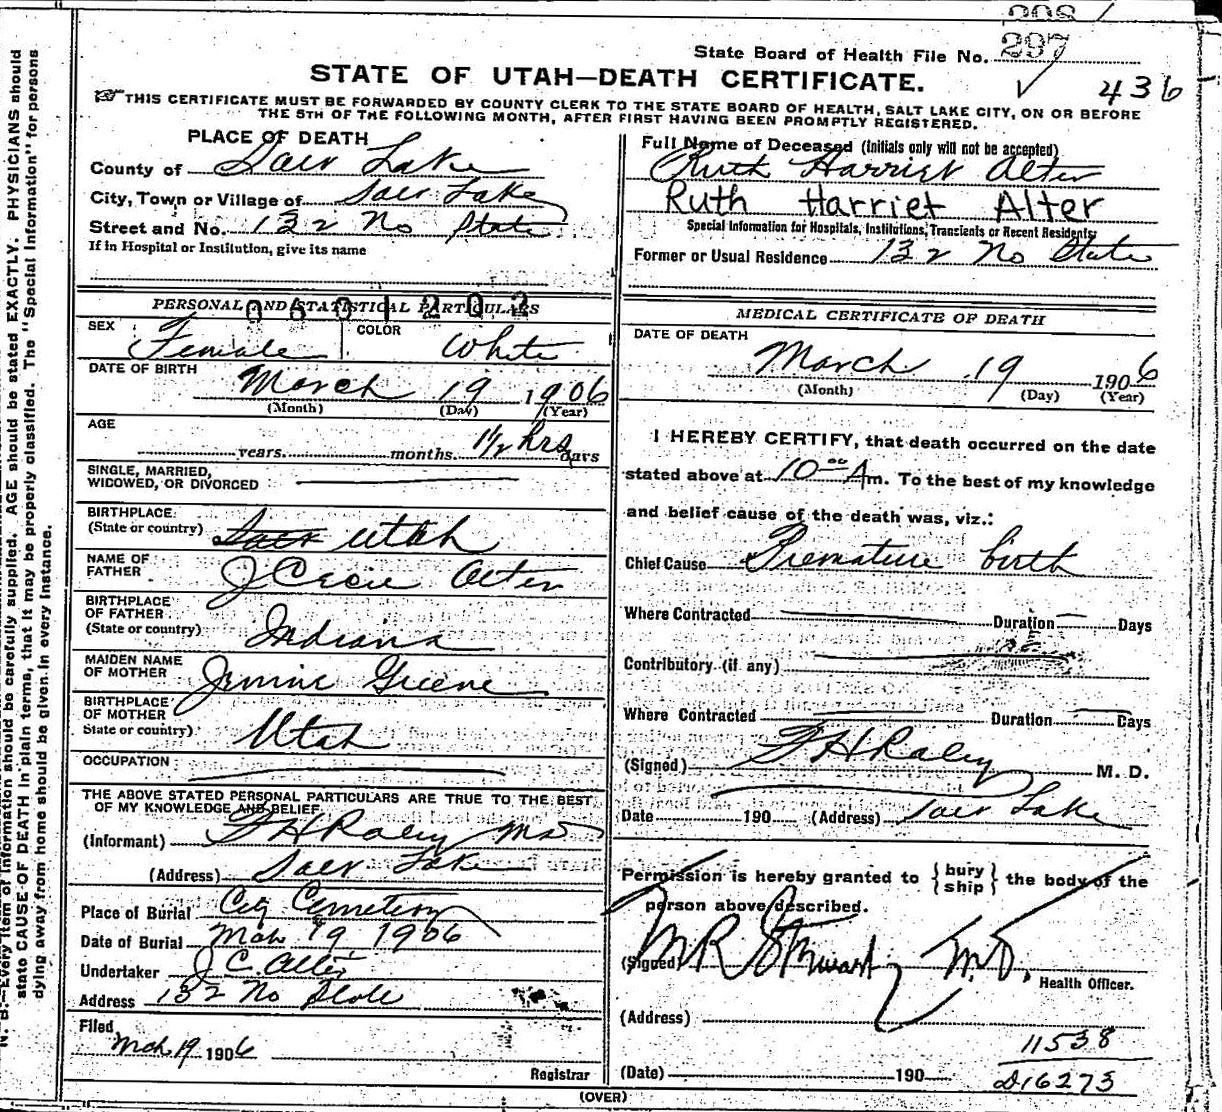 298 1
State Board of Health File No. 297
STATE OF UTAH—DEATH CERTIFICATE.
436
THIS CERTIFICATE MUST BE FORWARDED BY COUNTY CLERK TO THE STATE BOARD OF HEALTH, SALT LAKE CITY, ON OR BEFORE
THE 5TH OF THE FOLLOWING MONTH, AFTER FIRST HAVING BEEN PROMPTLY REGISTERED.
PLACE OF DEATH
County of Salt Lake
City, Town or Village of Salt Lake
Street and No. 132 No State
If in Hospital or Institution, give its name
Full Name of Deceased (Initials only will not be accepted)
Ruth Harriet Alter
Ruth Harriet Alter
Special Information for Hospitals, Institutions, Transients or Recent Residents:
Former or Usual Residence 132 No State
PERSONAL AND STATISTICAL PARTICULARS
0601202
SEX Female
COLOR White
DATE OF BIRTH March 19 1906
(Month) (Day) (Year)
AGE
years. months. 1 1/2 hrs days
SINGLE, MARRIED,
WIDOWED, OR DIVORCED
BIRTHPLACE
(State or country) Salt Utah
NAME OF
FATHER J Cecil Alter
BIRTHPLACE
OF FATHER
(State or country) Indiana
MAIDEN NAME
OF MOTHER Jennie Greene
BIRTHPLACE
OF MOTHER
State or country) Utah
OCCUPATION
THE ABOVE STATED PERSONAL PARTICULARS ARE TRUE TO THE BEST
OF MY KNOWLEDGE AND BELIEF
(Informant) F H Raley MD
(Address) Salt Lake
Place of Burial City Cemetery
Date of Burial Mch 19 1906
Undertaker J C. Alter
Address 132 No State
Filed
Mch 19 1906
Registrar
MEDICAL CERTIFICATE OF DEATH
DATE OF DEATH
March 19 1906
(Month) (Day) (Year)
I HEREBY CERTIFY, that death occurred on the date
stated above at 10 00 Am. To the best of my knowledge
and belief cause of the death was, viz.:
Chief Cause Premature birth
Where Contracted Duration Days
Contributory (if any)
Where Contracted Duration Days
(Signed) F H Raley M. D.
Date 190 (Address) Salt Lake
Permission is hereby granted to {bury ship} the body of the
person above described.
(Signed) M R Stewart M.D.
Health Officer.
(Address)
11538
(Date) 190
D16273
(OVER)
N. B.—Every item of information should be carefully supplied. AGE should be stated EXACTLY. PHYSICIANS should
state CAUSE OF DEATH in plain terms, that it may be properly classified. The "Special Information" for persons
dying away from home should be given in every instance.